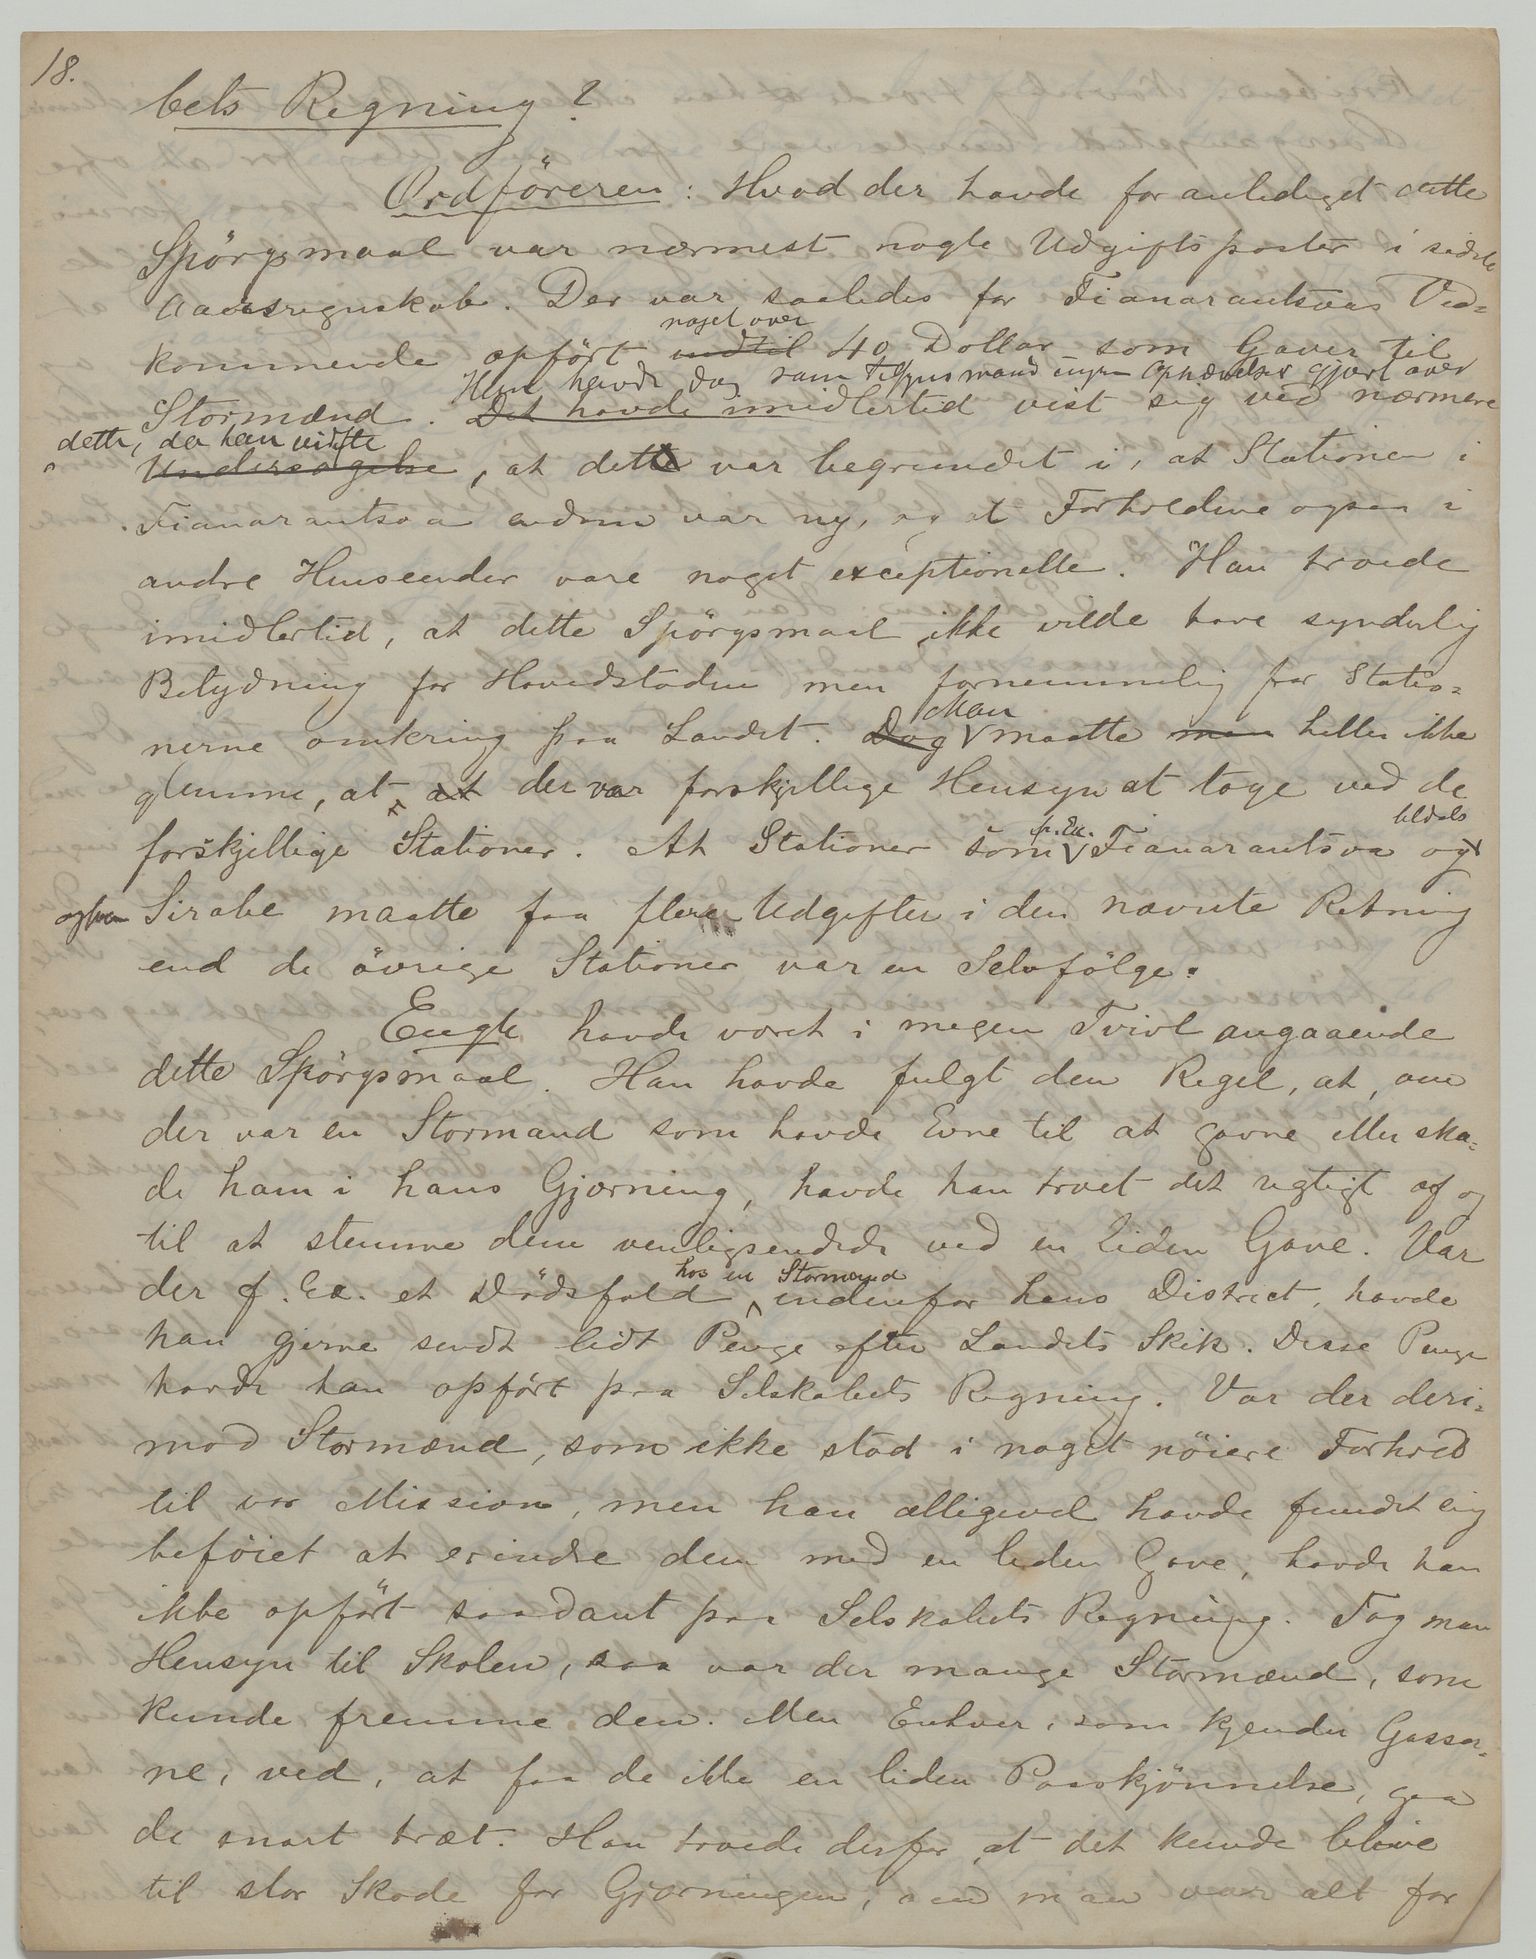 18.
bets Regning?
Ordföreren: Hvad der havde foranlediget dette
Spörgsmaal var nærmest nogle Udgiftsposter i sidste
Aarsregnskab. Der var saaledes for Fianarantsoas Ved-
noget over
kommende opfört indtil 40 Dollar som Gaver til
Han havde dog som Tilsynsmand ingen Ophævelser gjort over
Stormænd. Det havde imidlertid vist sig ved nærmere
dette, da han vidste
Undersøgelse, at dette var begrundet i, at Stationen i
Fianarantsoa endnu var ny, og at Forholdene ogsaa i
andre Henseender vare noget exceptionelle. Han troede
imidlertid, at dette Spörgsmaal ikke vilde have synderlig
Betydning for Hovedstaden men fornemmelig for Statio-
nerne omkring paa Landet. Dog Man maatte man heller ikke
glemme, at at der var forskjellige Hensyn at tage ved de
forskjellige Stationer. At Stationer som f. Ex. Fianarantsoa og tildels
ogsaa Sirabe maatte faa flere Udgifter i den nævnte Retning
end de övrige Stationer var en Selvfölge.
Engh havde været i megen Tvivl angaaende
dette Spörgsmaal. Han havde fulgt den Regel, at, om
der var en Stormand som havde Evne til at gavne eller ska-
de ham i hans Gjerning, havde han troet det rigtigt af og
til at stemme dem venligsindede ved en liden Gave. Var
hos en Stormand
der f. Ex. et Dödsfald indenfor hans District, havde
han gjerne sendt lidt Penge efter Landets Skik. Disse Penge
havde han opfört paa Selskabets Regning. Var der deri-
mod Stormænd, som ikke stod i noget nöiere Forhold
til vor Mission, men han alligevel havde fundet sig
beföiet at erindre dem med en liden Gave, havde han
ikke opfört saadant paa Selskabets Regning. Tog man
Hensyn til Skolen, saa var der mange Stormænd, som
kunde fremme den. Men Enhver, som kjender Gasser-
ne, ved, at faa de ikke en liden Paaskjönnelse, gaa
de snart træt. Han troede derfor, at det kunde blive
til stor Skade for Gjerningen, om man var alt for